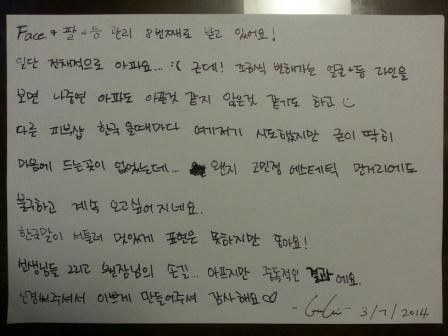 Face + 팔 + 등 관리 8번째로 받고 있어요!
일단 전체적으로 아파요... :( 근데! 조금씩 변해가는 얼굴+등 라인을
보면 나중엔 아파도 아픈것 같지 않은것 같기도 하고
다른 피부샵 한국 올때마다 여기저기 시도했지만 굳이 딱히
마음에 드는곳이 없었는데... 왠지 고민정 에스테틱 먼거리에도
불구하고 계속 오고싶어지네요.
한국말이 서툴러 멋있게 표현은 못하지만 좋아요!
선생님들 그리고 원장님의 손길... 아프지만 중독적인 결과에요.
신경써주셔서 이쁘게 만들어주셔 감사해요♡
3/7/2014